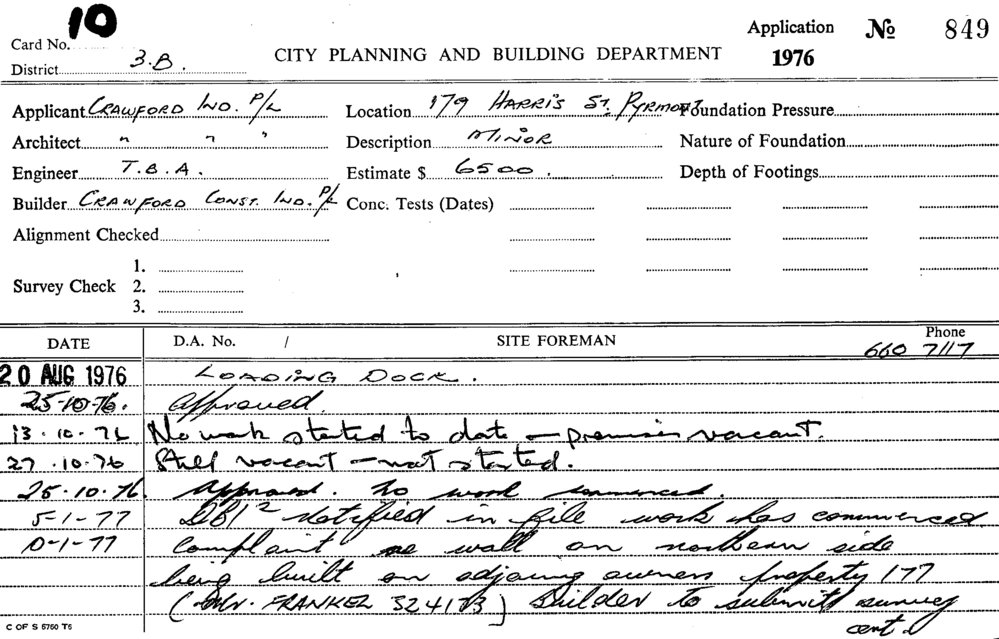 10
Card No.
District 3.B.
CITY PLANNING AND BUILDING DEPARTMENT
Application No 849
1976
Applicant CRAWFORD IND. P/L Location 179 HARRIS ST. PYRMONT Foundation Pressure
Architect " " " Description MINOR Nature of Foundation
Engineer T.B.A. Estimate $ 6500. Depth of Footings
Builder CRAWFORD CONST. IND. P/L Conc. Tests (Dates)
Alignment Checked
1.
Survey Check 2.
3.
DATE D.A. No. / SITE FOREMAN Phone
660 7117
20 AUG 1976 LOADING DOCK.
25-10-76. Approved.
13.10.76 No work started to date - premises vacant.
27.10.76 Still vacant - not started.
25.10.76. Approved. No work commenced.
5-1-77 notified in file work has commenced
0-1-77 Complaint re wall on northern side
being built on adjoing owners property 177
(Mr. FRANKEL 324173) Builder to submit survey
cert.
C OF S 5760 T5